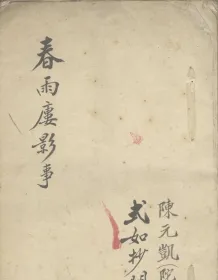 春雨廔影事
陳元凱(阮
式如抄